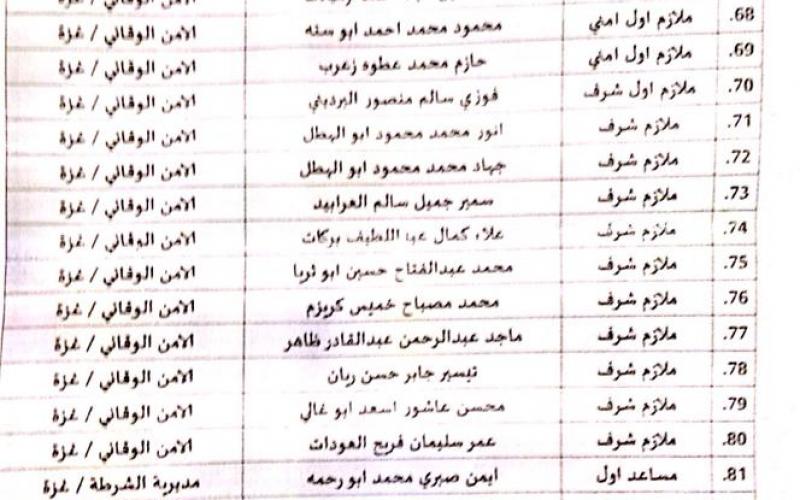 الأمن الوقائي / غزة
68. ملازم اول امني محمود محمد احمد ابو سنه الأمن الوقائي / غزة
69. ملازم اول امني حازم محمد عطوه زعرب الأمن الوقائي / غزة
70. ملازم اول شرف فوزي سالم منصور البرديني الأمن الوقائي / غزة
71. ملازم شرف انور محمد محمود ابو الهطل الأمن الوقائي / غزة
72. ملازم شرف جهاد محمد محمود ابو الهطل الأمن الوقائي / غزة
73. ملازم شرف سمير جميل سالم العرابيد الأمن الوقائي / غزة
74. ملازم شرف علاء كمال عبد اللطيف بركات الأمن الوقائي / غزة
75. ملازم شرف محمد عبدالفتاح حسين ابو ثريا الأمن الوقائي / غزة
76. ملازم شرف محمد مصباح خميس كريزم الأمن الوقائي / غزة
77. ملازم شرف ماجد عبدالرحمن عبدالقادر ظاهر الأمن الوقائي / غزة
78. ملازم شرف تيسير جابر حسن ريان الأمن الوقائي / غزة
79. ملازم شرف محسن عاشور اسعد ابو غالي الأمن الوقائي / غزة
80. ملازم شرف عمر سليمان فريح العودات الأمن الوقائي / غزة
81. مساعد اول ايمن صبري محمد ابو رحمه مديرية الشرطة / غزة